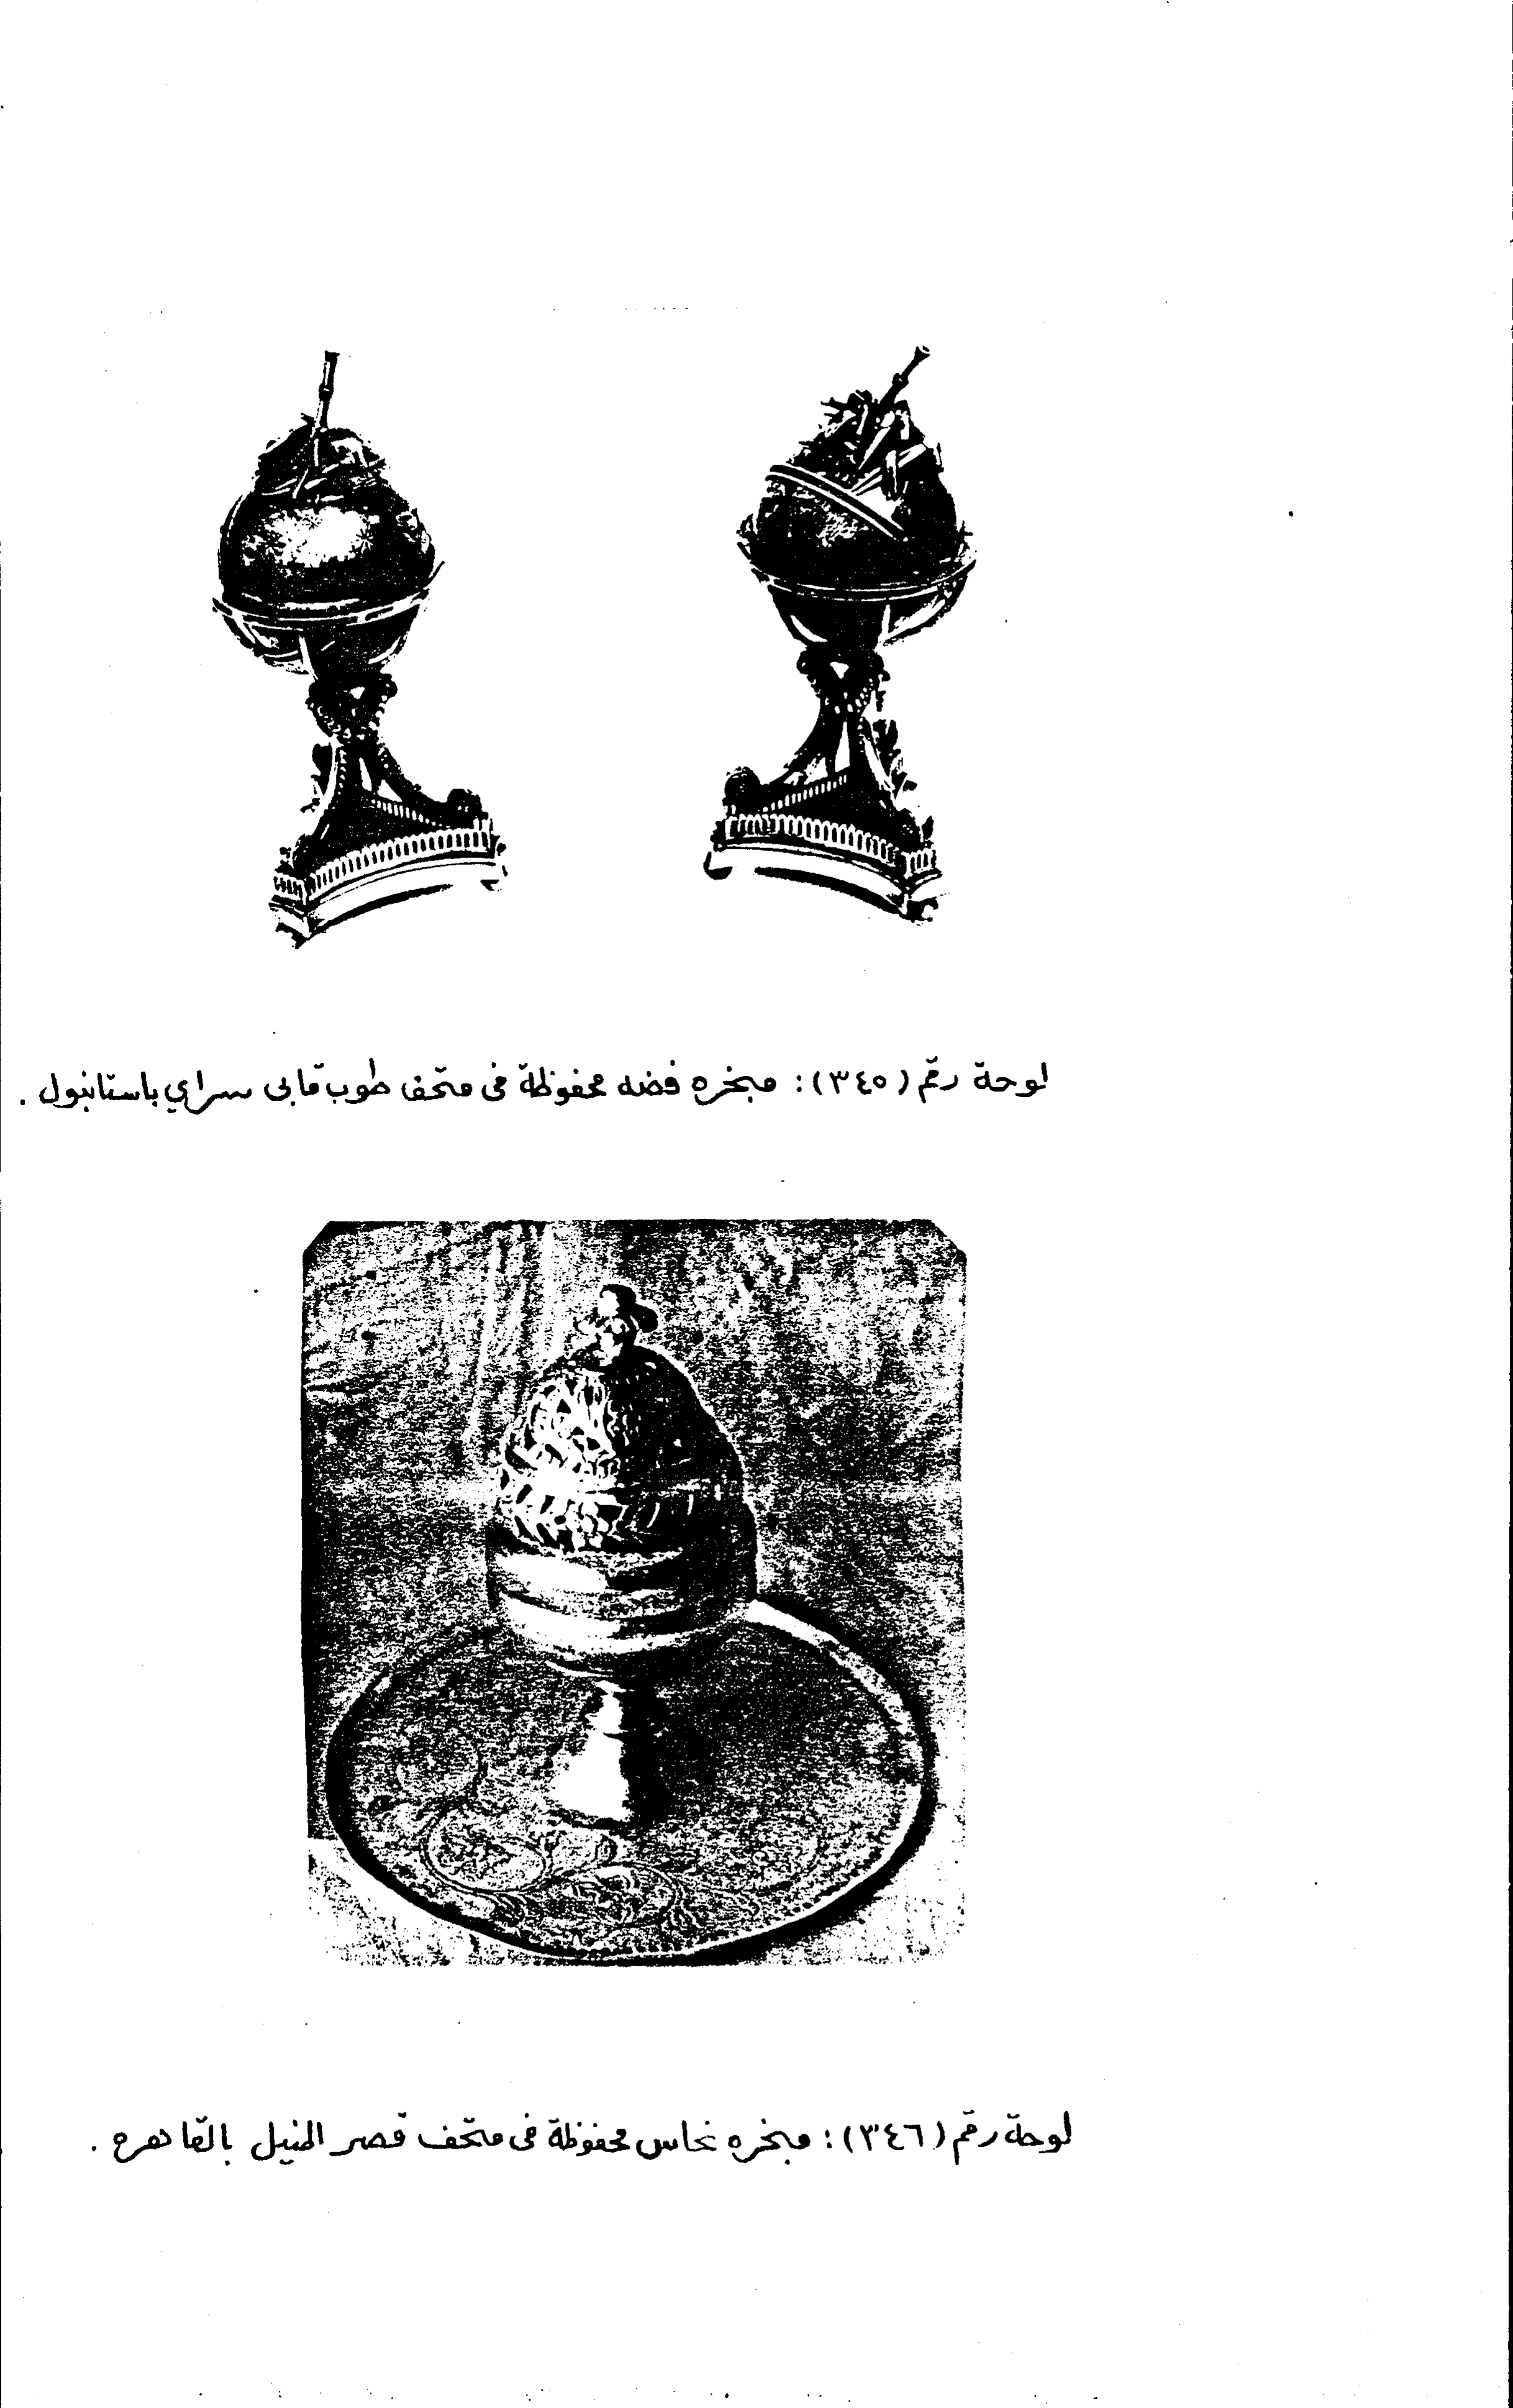 لوحة رقم (٣٤٥): مبخره فضه محفوظة فى متحف طوب قابى سراي باستانبول .
لوحة رقم (٣٤٦): مبخره نحاس محفوظة فى متحف قصر المنيل بالقاهره .